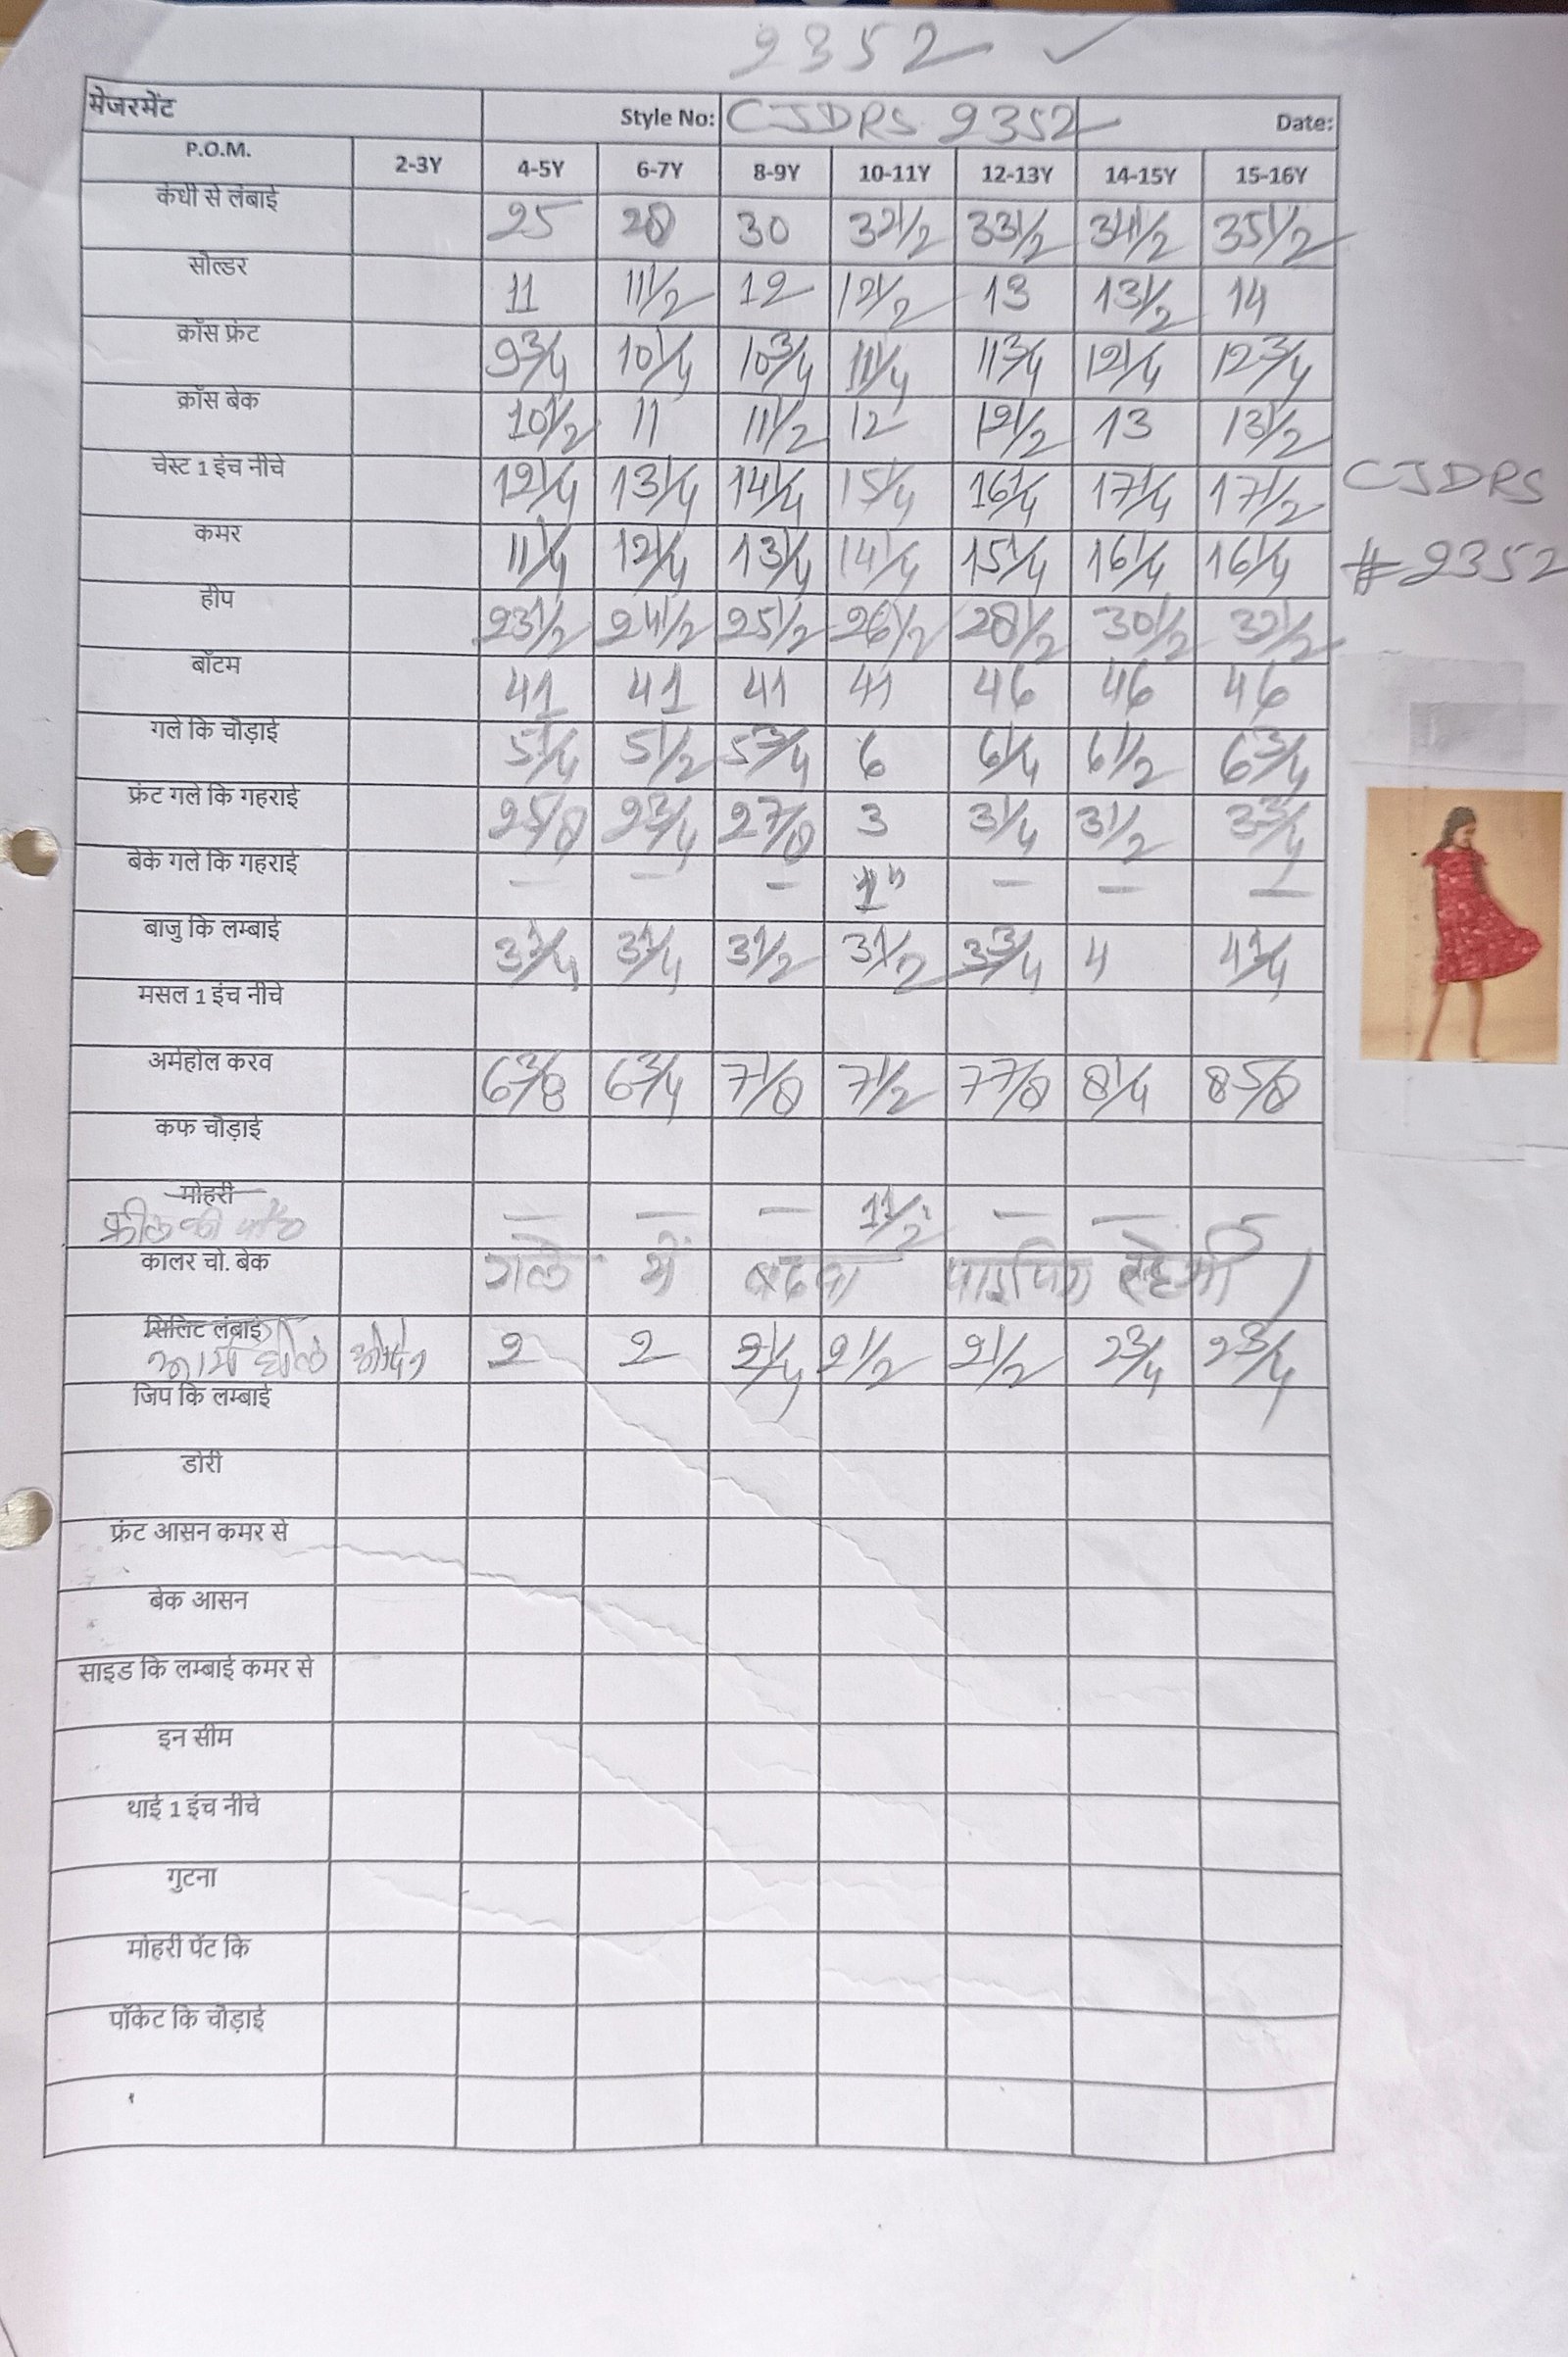 2352 ✓
मेजरमेंट Style No: CJDRS 2352 Date:
P.O.M. 2-3Y 4-5Y 6-7Y 8-9Y 10-11Y 12-13Y 14-15Y 15-16Y
कंधी से लंबाई 25 28 30 32 1/2 33 1/2 34 1/2 35 1/2
सोल्डर 11 11 1/2 12 12 1/2 13 13 1/2 14
क्रॉस फ्रंट 9 3/4 10 1/4 10 3/4 11 1/4 11 3/4 12 1/4 12 3/4
क्रॉस बेक 10 1/2 11 11 1/2 12 12 1/2 13 13 1/2
चेस्ट 1 इंच नीचे 12 1/4 13 1/4 14 1/4 15 1/4 16 1/4 17 1/4 17 1/2
CJDRS
कमर 11 1/4 12 1/4 13 1/4 14 1/4 15 1/4 16 1/4 16 1/4
#2352
हीप 23 1/2 24 1/2 25 1/2 26 1/2 28 1/2 30 1/2 32 1/2
बॉटम 41 41 41 41 46 46 46
गले कि चौड़ाई 5 1/4 5 1/2 5 3/4 6 6 1/4 6 1/2 6 3/4
फ्रंट गले कि गहराई 2 5/8 2 3/4 2 7/8 3 3 1/4 3 1/2 3 3/4
बेके गले कि गहराई — — — 1" — — —
बाजु कि लम्बाई 3 1/4 3 1/4 3 1/2 3 1/2 3 3/4 4 4 1/4
मसल 1 इंच नीचे
अर्महोल करव 6 3/8 6 3/4 7 1/8 7 1/2 7 7/8 8 1/4 8 5/8
कफ चौड़ाई
मोहरी
फ्रील की — — — 1 1/2" — —
कालर चो. बेक गले में पाइपिग रहेगी
सिलिट लंबाई
आर्म होल 2 2 2 1/4 2 1/2 2 1/2 2 3/4 2 3/4
जिप कि लम्बाई
डोरी
फ्रंट आसन कमर से
बेक आसन
साइड कि लम्बाई कमर से
इन सीम
थाई 1 इंच नीचे
गुटना
मोहरी पेंट कि
पॉकेट कि चौड़ाई